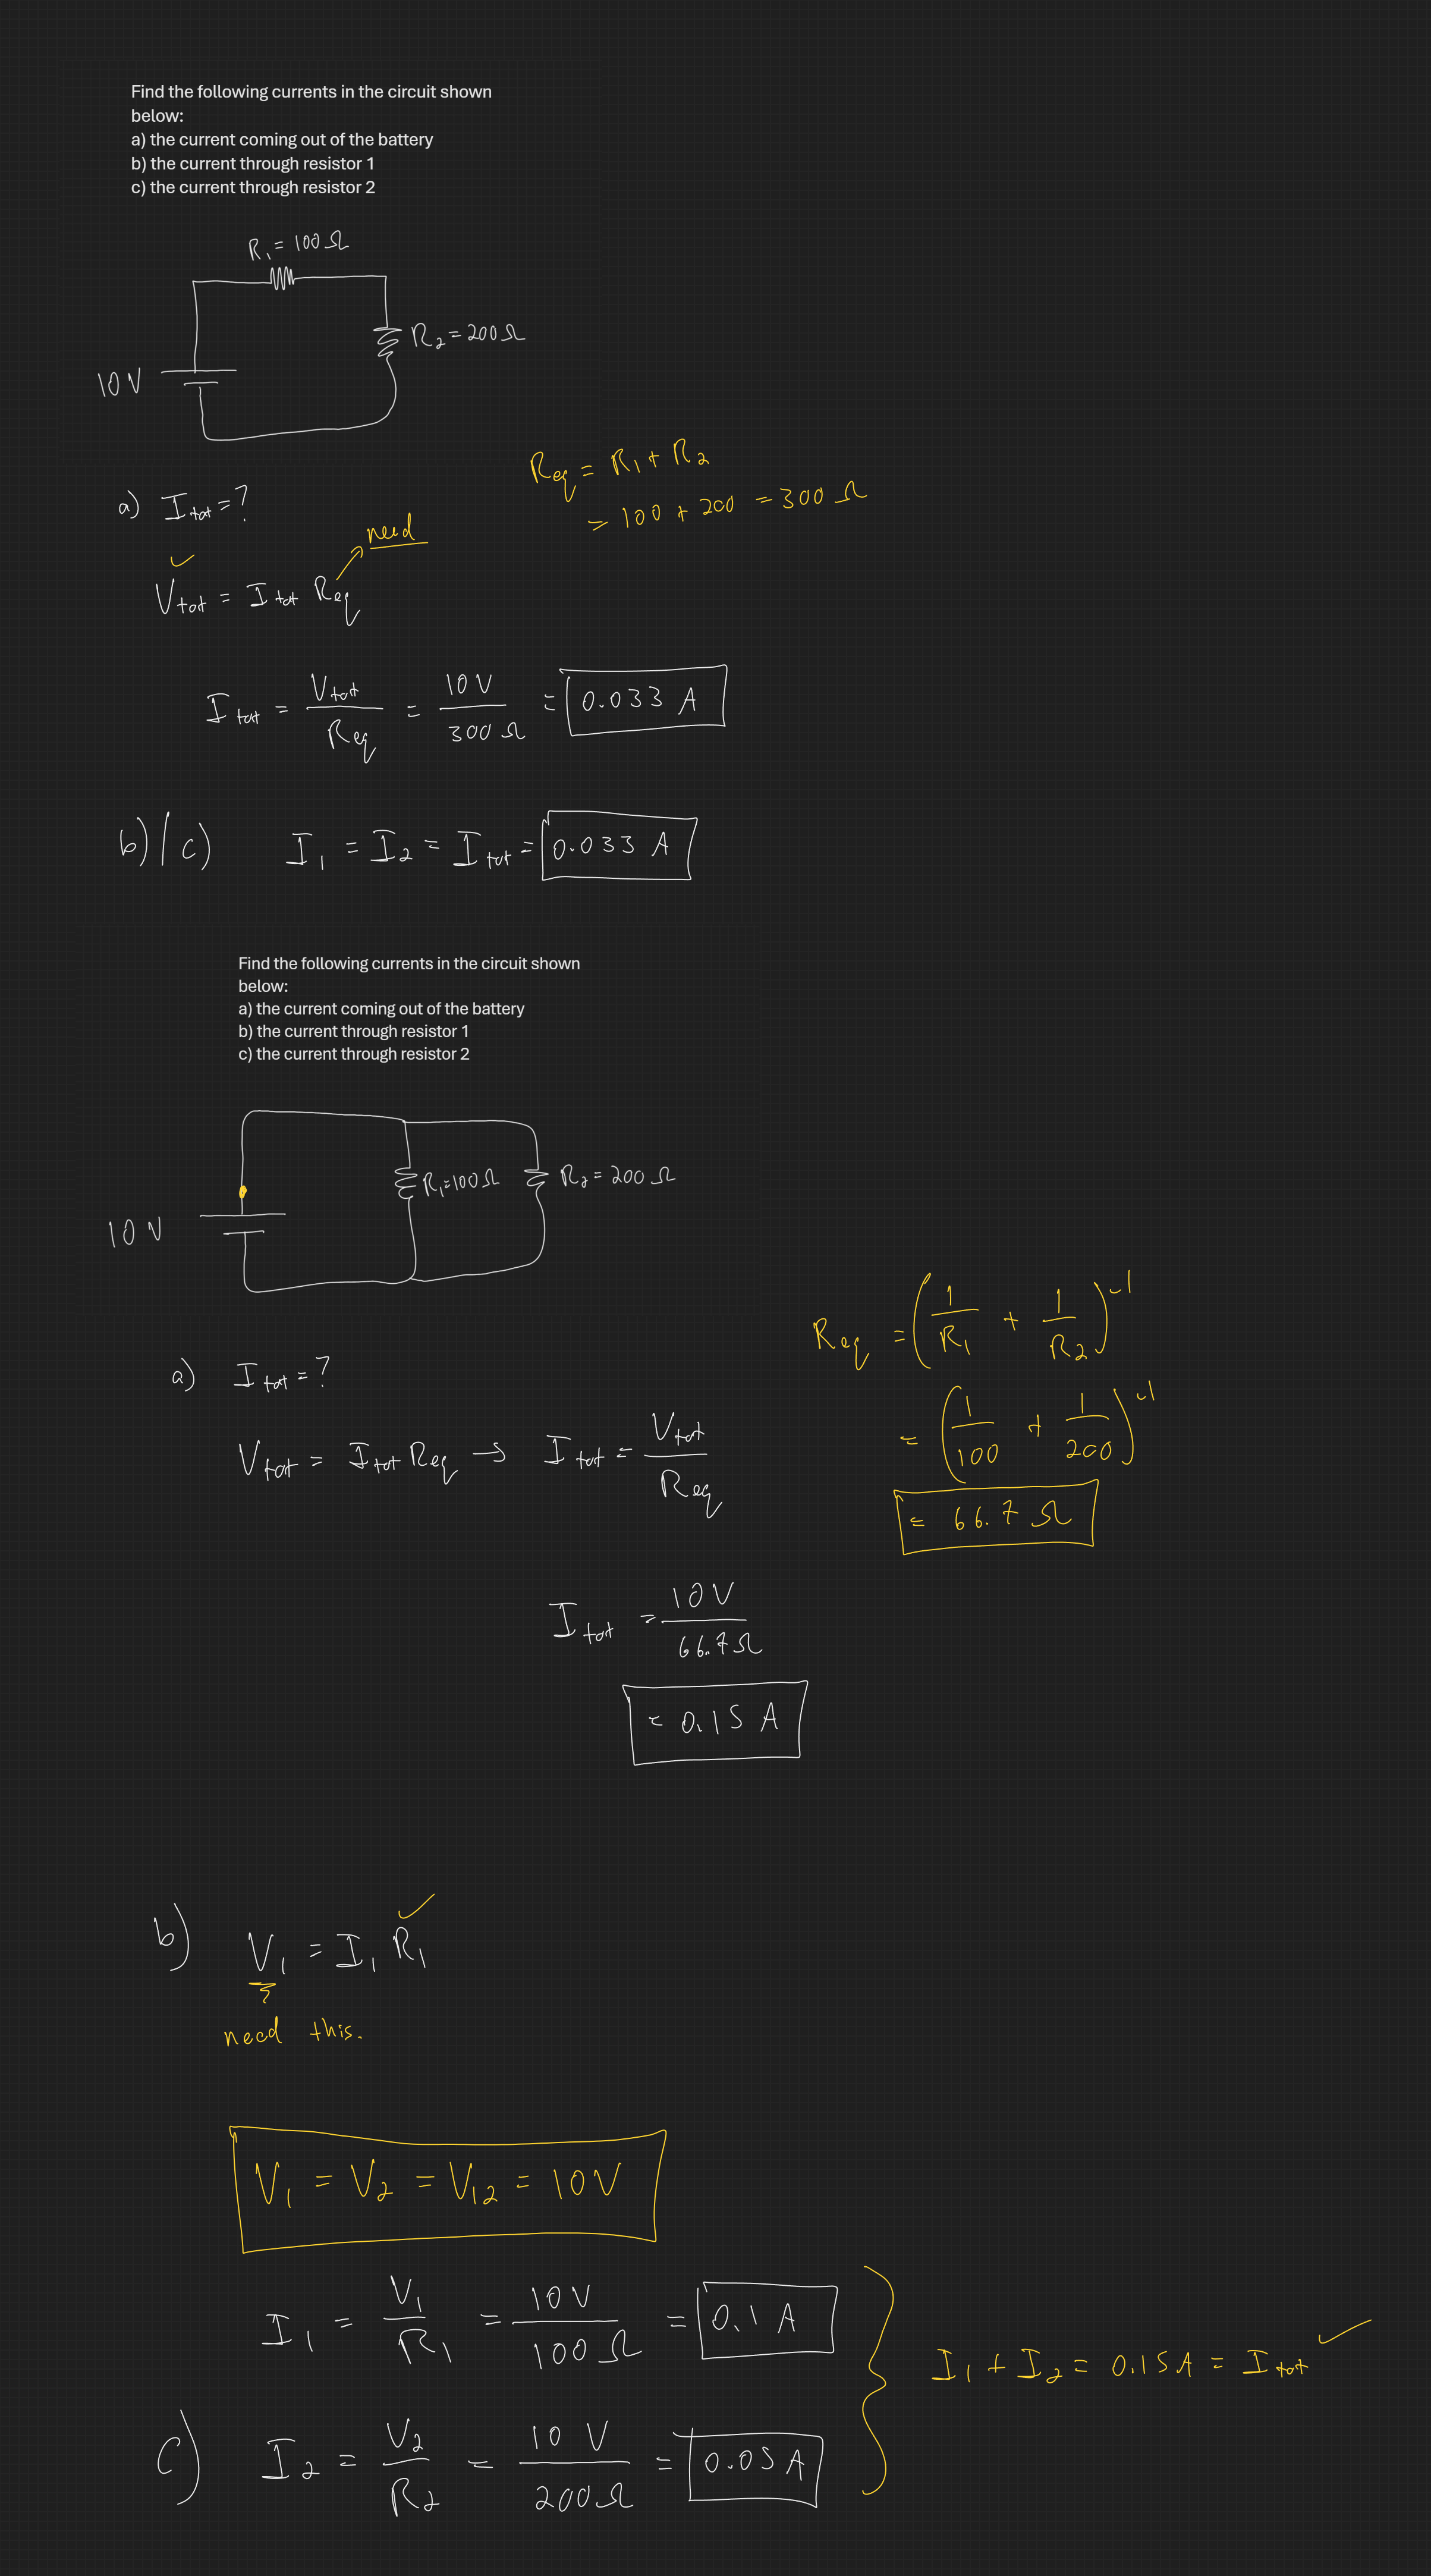 Find the following currents in the circuit shown
below:
a) the current coming out of the battery
b) the current through resistor 1
c) the current through resistor 2
R₁ = 100 Ω
R₂ = 200 Ω
10 V
Req = R₁ + R₂
= 100 + 200 = 300 Ω
a) Itot = ?
need
✓
Vtot = Itot Req
Itot = Vtot / Req = 10 V / 300 Ω = 0.033 A
b)/c) I₁ = I₂ = Itot = 0.033 A
Find the following currents in the circuit shown
below:
a) the current coming out of the battery
b) the current through resistor 1
c) the current through resistor 2
R₁=100 Ω
R₂ = 200 Ω
10 V
Req = (1/R₁ + 1/R₂)⁻¹
= (1/100 + 1/200)⁻¹
= 66.7 Ω
a) Itot = ?
Vtot = Itot Req → Itot = Vtot / Req
Itot = 10 V / 66.7 Ω
= 0.15 A
✓
b) V₁ = I₁ R₁
need this.
V₁ = V₂ = V₁₂ = 10 V
I₁ = V₁ / R₁ = 10 V / 100 Ω = 0.1 A
I₁ + I₂ = 0.15 A = Itot ✓
c) I₂ = V₂ / R₂ = 10 V / 200 Ω = 0.05 A